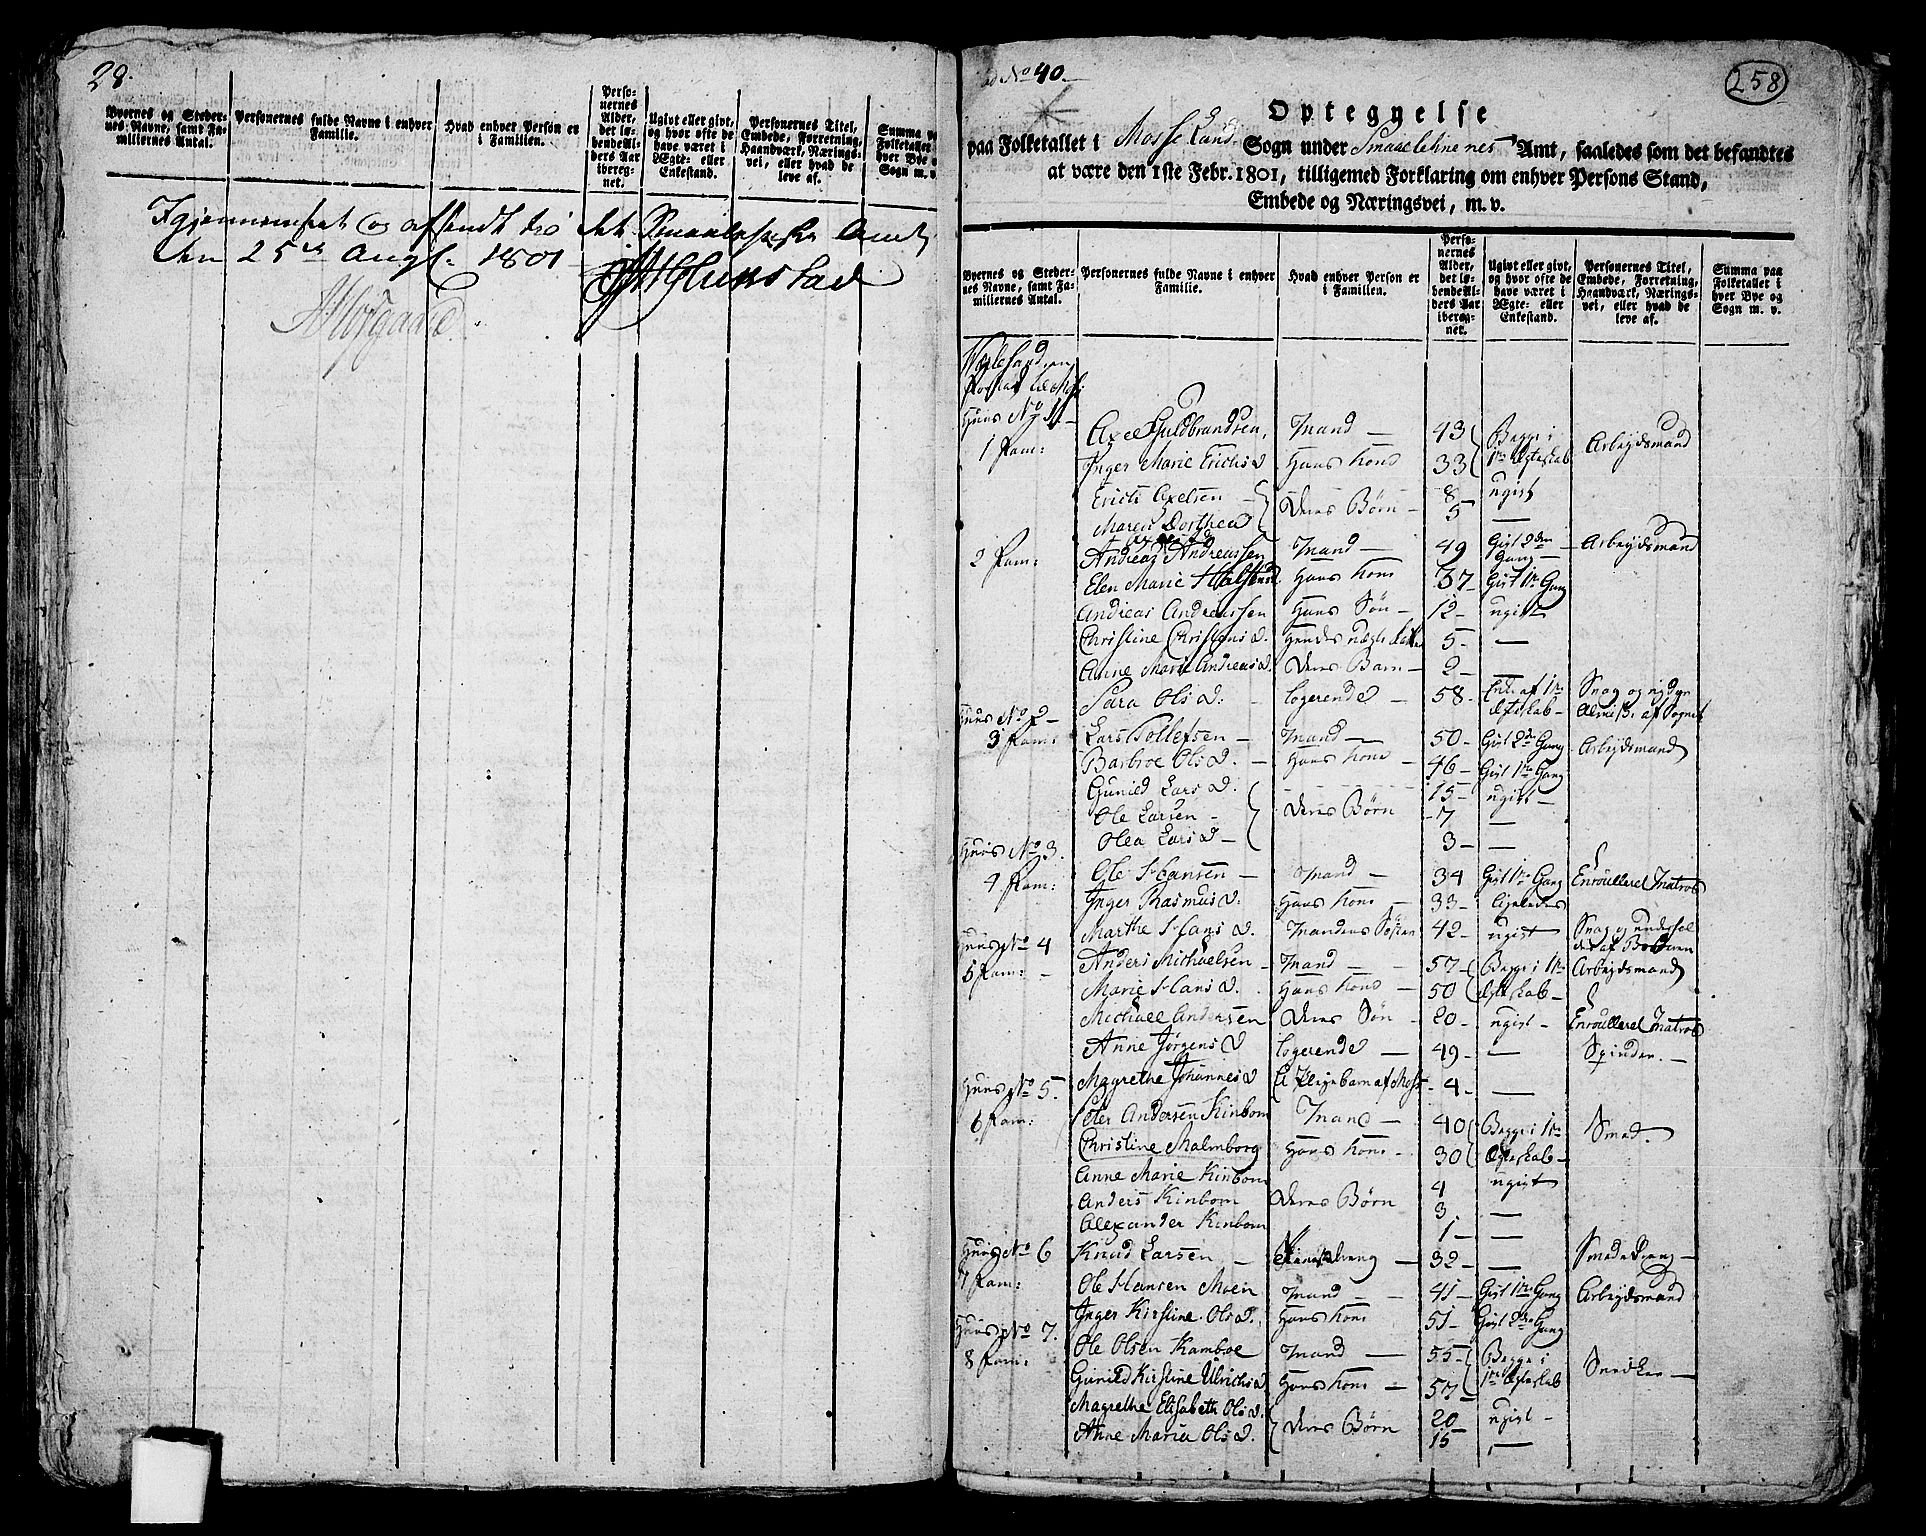 28.
Byernes og Steder-
nes Navne, samt Fa-
miliernes Antal.
Personernes fulde Navne i enhver
Familie.
Hvad enhver Person er
i Familien.
Perso-
nernes
Alder,
det lø-
bende Al-
ders Aar
iberegs-
net.
Ugivt eller givt,
og hvor ofte de
have været i
Ægte- eller
Enkestand.
Personernes Titel,
Embede, Forretning,
Haandværk, Nærings-
vei, eller hvad de
leve af.
Summa paa
Folketallet i
hver Bye og
Sogn m. v.
og afsendt fra det Smaalehnske Amt
den 25de Aug. 1801
No 40
258
Optegnelse
paa Folketallet i Mosse Land Sogn under Smaalehnenes Amt, saaledes som det befandtes
at være den 1ste Febr. 1801, tilligemed Forklaring om enhver Persons Stand,
Embede og Næringsvei, m. v.
Byernes og Steder-
nes Navne, samt Fa-
miliernes Antal.
Personernes fulde Navne i enhver
Familie.
Hvad enhver Person er
i Familien.
Perso-
nernes
Alder,
det lø-
bende Al-
ders Aar
iberegs-
net.
Ugivt eller givt,
og hvor ofte de
have været i
Ægte- eller
Enkestand.
Personernes Titel,
Embede, Forretning,
Haandværk, Nærings-
vei, eller hvad de
leve af.
Summa paa
Folketallet i
hver Bye og
Sogn m. v.
Huus No 1
1 Fam: Axel Guldbrandsen, Mand — 43 Begge i Arbejdsmand
Inger Marie Erichs d. Hans Kone 33 1te Ægteskab
Erich Axelsen — Deres Børn — 8 ugift
Maren Dorthea 5 —
2 Fam: Andreas Andreassen Mand — 49 Gift 2den Gang — Arbejdsmand
Elen Marie Hans Kone 37 Gift 1te Gang
Andreas Andreassen Hans Søn — 12 — ugift
Christine Christens d. Hendes uægte 5 — —
Anne Marie Andreas d. Deres Barn — 2 — —
Sara Ols d. — Logerende — 58 — Enke af 1te Ægteskab — Svag og nyder Almisse af Sognet
Huus No 2 —
3 Fam: Lars Tollefsen — Mand — 50 — Gift 2de Gang Arbejdsmand
Barbroe Ols d. — Hans Kone — 46 — Gift 1te Gang
Gunild Lars d. 15 — ugift —
Ole Larsen — Deres Børn 7 —
Olea Lars d — 3 — —
Huus No 3.
4 Fam: Ole Hansen — Mand — 34 Gift 1te Gang Enroulleret Matros
Inger Rasmus d. Hans Kone — 33 — ligeledes
Marthe Hans d. Mandens Søster 42 — ugift Svag og
Huus No 4
5 Fam: — Anders Michaelsen — Mand — 57 — Begge i 1te Arbejdsmand
Marie Hans d. Hans Kone — 50 Ægteskab —
Michael Andersen Deres Søn — 20 — ugift — Enroulleret Matros
Anne Jørgens d Logerende — 49 — — Spinder. —
Magrethe Johannes d Et Plejebarn af Moss — 4 — —
Huus No 5.
6 Fam: Peter Andersen Kinbom Mand — 40 Begge i 1te Smed.
Christine Malmborg Hans Kone — 30 Ægteskab —
Anne Marie Kinbom 4 ugift
Anders Kinbom Deres Børn 3. —
Alexander Kinbom 1 — —
Knud Larsen — — 32 — — Smededreng —
Huus No 6
7 Fam: Ole Hansen Moen Mand — 41 — Gift 1te Gang Arbejdsmand
Inger Kirstine Ols d. Hans Kone 51 — Gift 2den Gang
Huus No 7.
8 Fam: Ole Olsen Kamboe Mand — 55 — Begge i Snedker —
Gunild Kirstine Ulrichs d Hans Kone — 57 — 1te Ægteskab
Magrethe Elisabeth Ols d. Deres Børn 20 ugift —
Anne Maria Ols d. 15 —